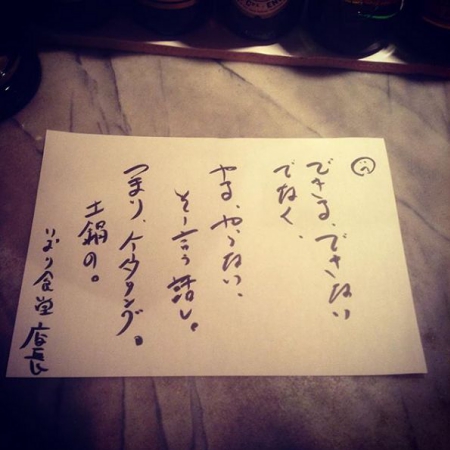 できる、できない
でなく、
やる、やらない、
そー言う話し。
つまり、ケータリング。
土鍋の。
いおり食堂 店長